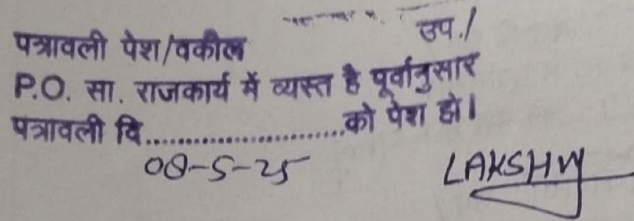 पत्रावली पेश/वकील उप./
P.O. सा. राजकार्य में व्यस्त है पूर्वानुसार
पत्रावली दि......................को पेश हो।
08-5-25 LAKSHMY